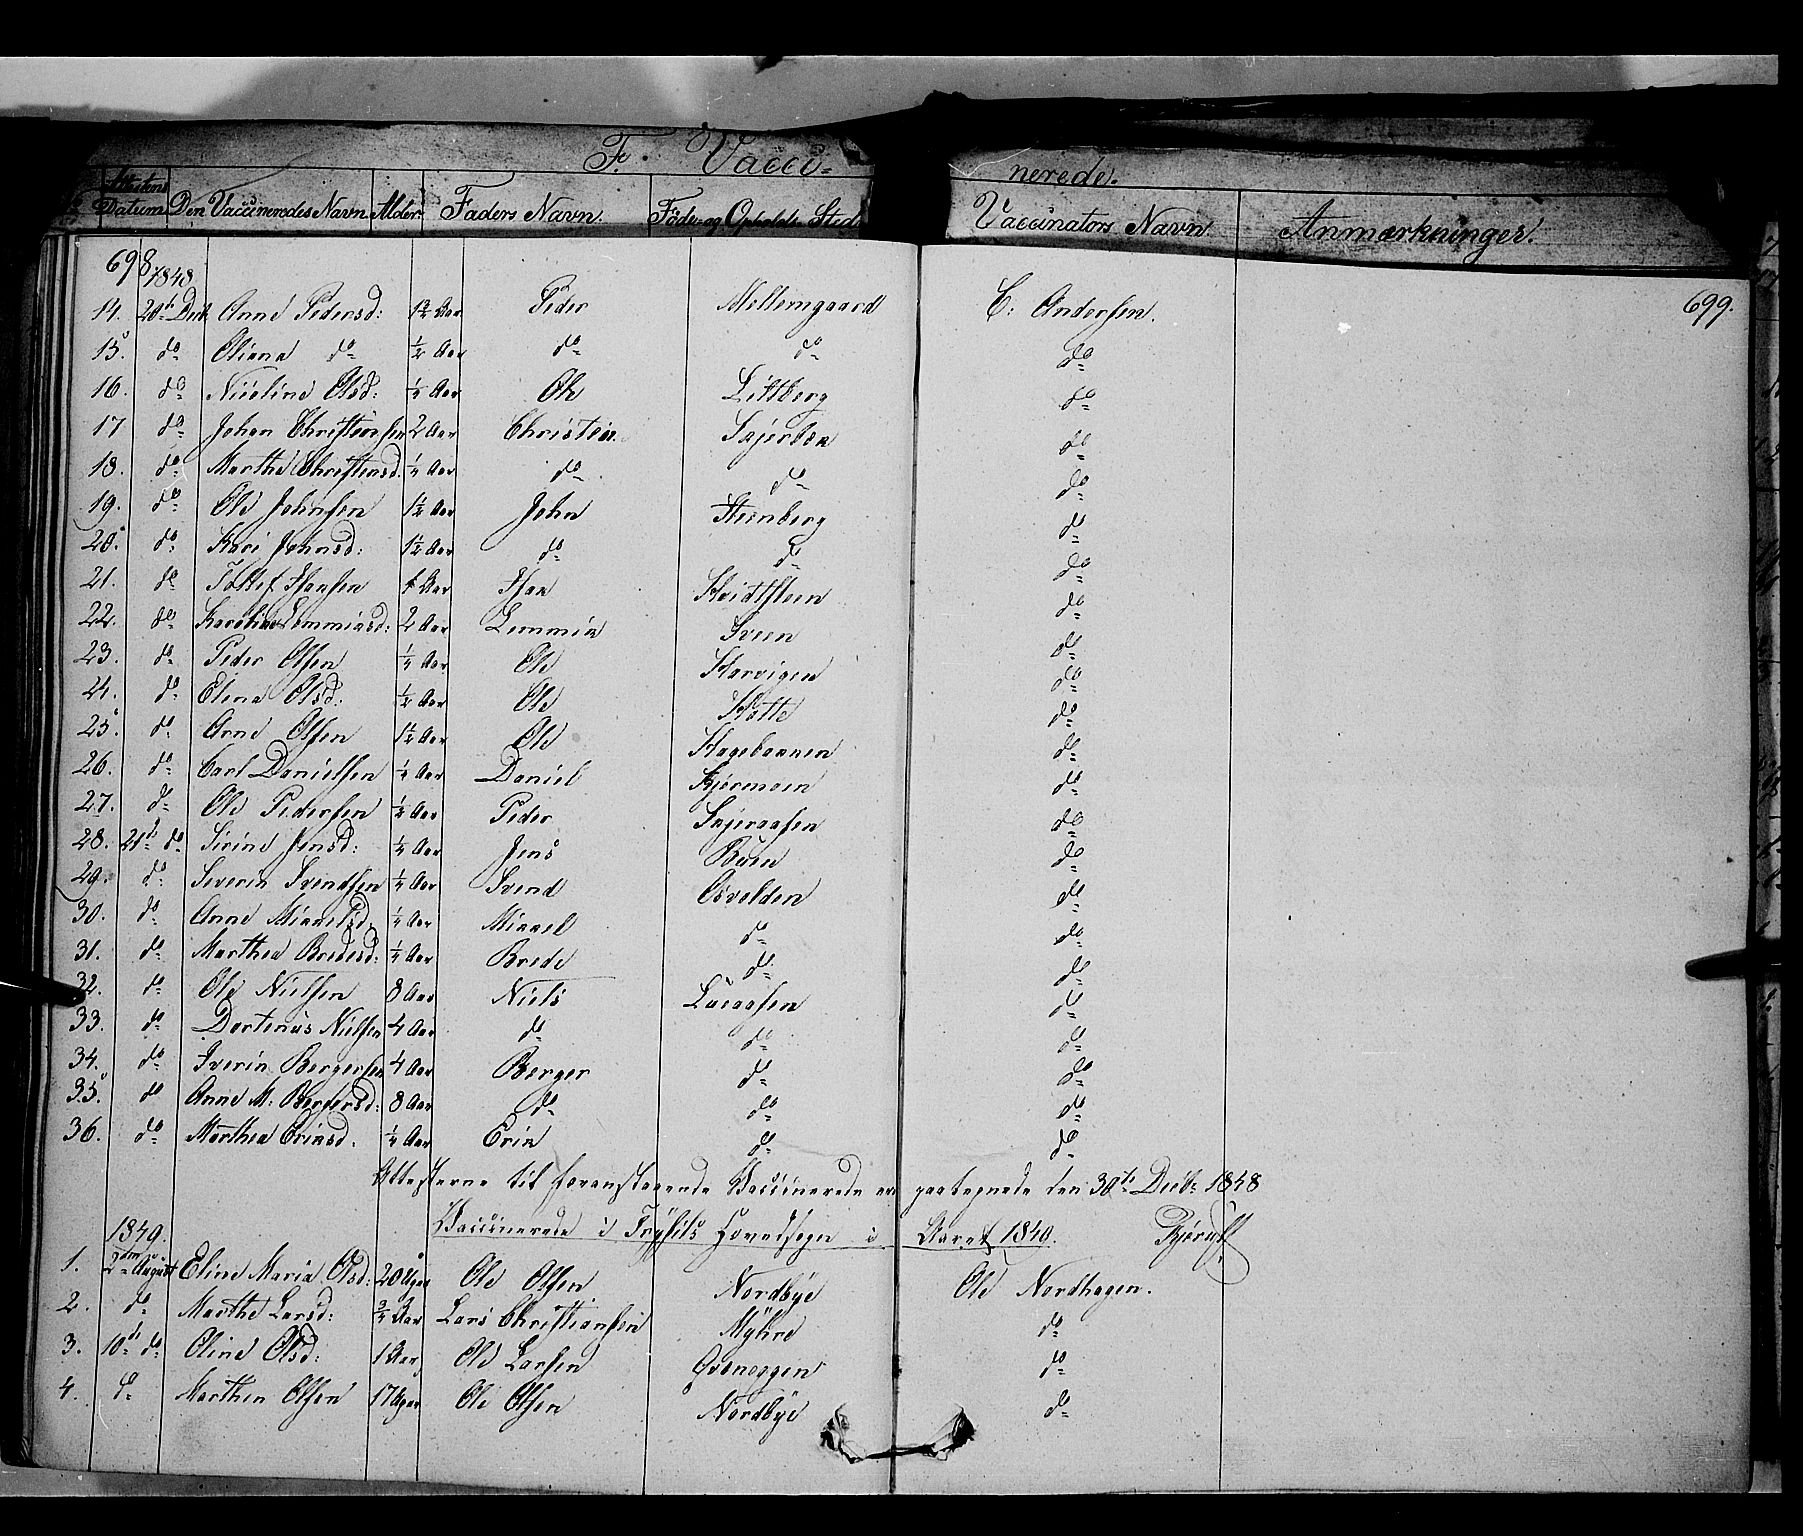 F. Vacci- nerede.
Attestens Datum Den Vaccineredes Navn Alder Faders Navn. Føde- og Opholds Sted Vaccinators Navn. Anmærkninger.
698 1848 699.
14. 20de Decb Anne Pedersd: 1½ Aar Peder Mellemgaard C. Andersen.
15. do Oliana do ½ Aar do do do
16. do Olsd: ¼ Aar Ole Litlberg do
17 do Johan Christensen 2 Aar Christen do
18. do Marthe Christensd. ¼ Aar do do do
19. do Ole Johnsen 1½ Aar John Steenberg do
20. do Kari Johnsd: 1½ Aar do do do
21. do Tollef Aar do
22. do Karoline Lemminsd: 2 Aar Lemmin Sveen do
23. do Peder Olsen ¼ Aar Ole do
24. do Elena Olsd: ½ Aar Ole do
25. do Arne Olsen 1½ Aar Ole do
26. do Carl Danielsen ¼ Aar Daniel Kjermoen do
27. do Ole Pedersen ¼ Aar Peder do
28. 21de do Sirine Jensd: ¼ Aar Jens do
29. do Severin Svendsen ¼ Aar Svend Osvolden do
30. do Anne Mikkelsd. ¼ Aar Mikkel do do
31. do Marthea Bredesd: ¼ Aar Brede do do
32. do Ole Nielsen 8 Aar Niels do
33. do Dortinus Nielsen 4 Aar do do do
34. do Iverin Bergersen 4 Aar Berger do do
35. do Anne M: Bergersd: 8 Aar do do do
36. do Marthea Erinsd. ¼ Aar Erin do do
Attesterne til foranstaaende Vaccinerede ere paategnede den 30te Decbr 1848
1849. Vaccinerede i Trysils Hovedsogn i Aaret 1849.
1. 2den August Eline Maria Olsd: 20 Uger Ole Olsen Nordbye Ole Nordhagen.
2. do Marthe Larsd: ¾ Aar Lars Christiansen Myhre do
3. 10de do Oline Olsd: 1 Aar Ole Larsen do
4. do Marthin Olsen 17 Uger Ole Olsen Nordbye do